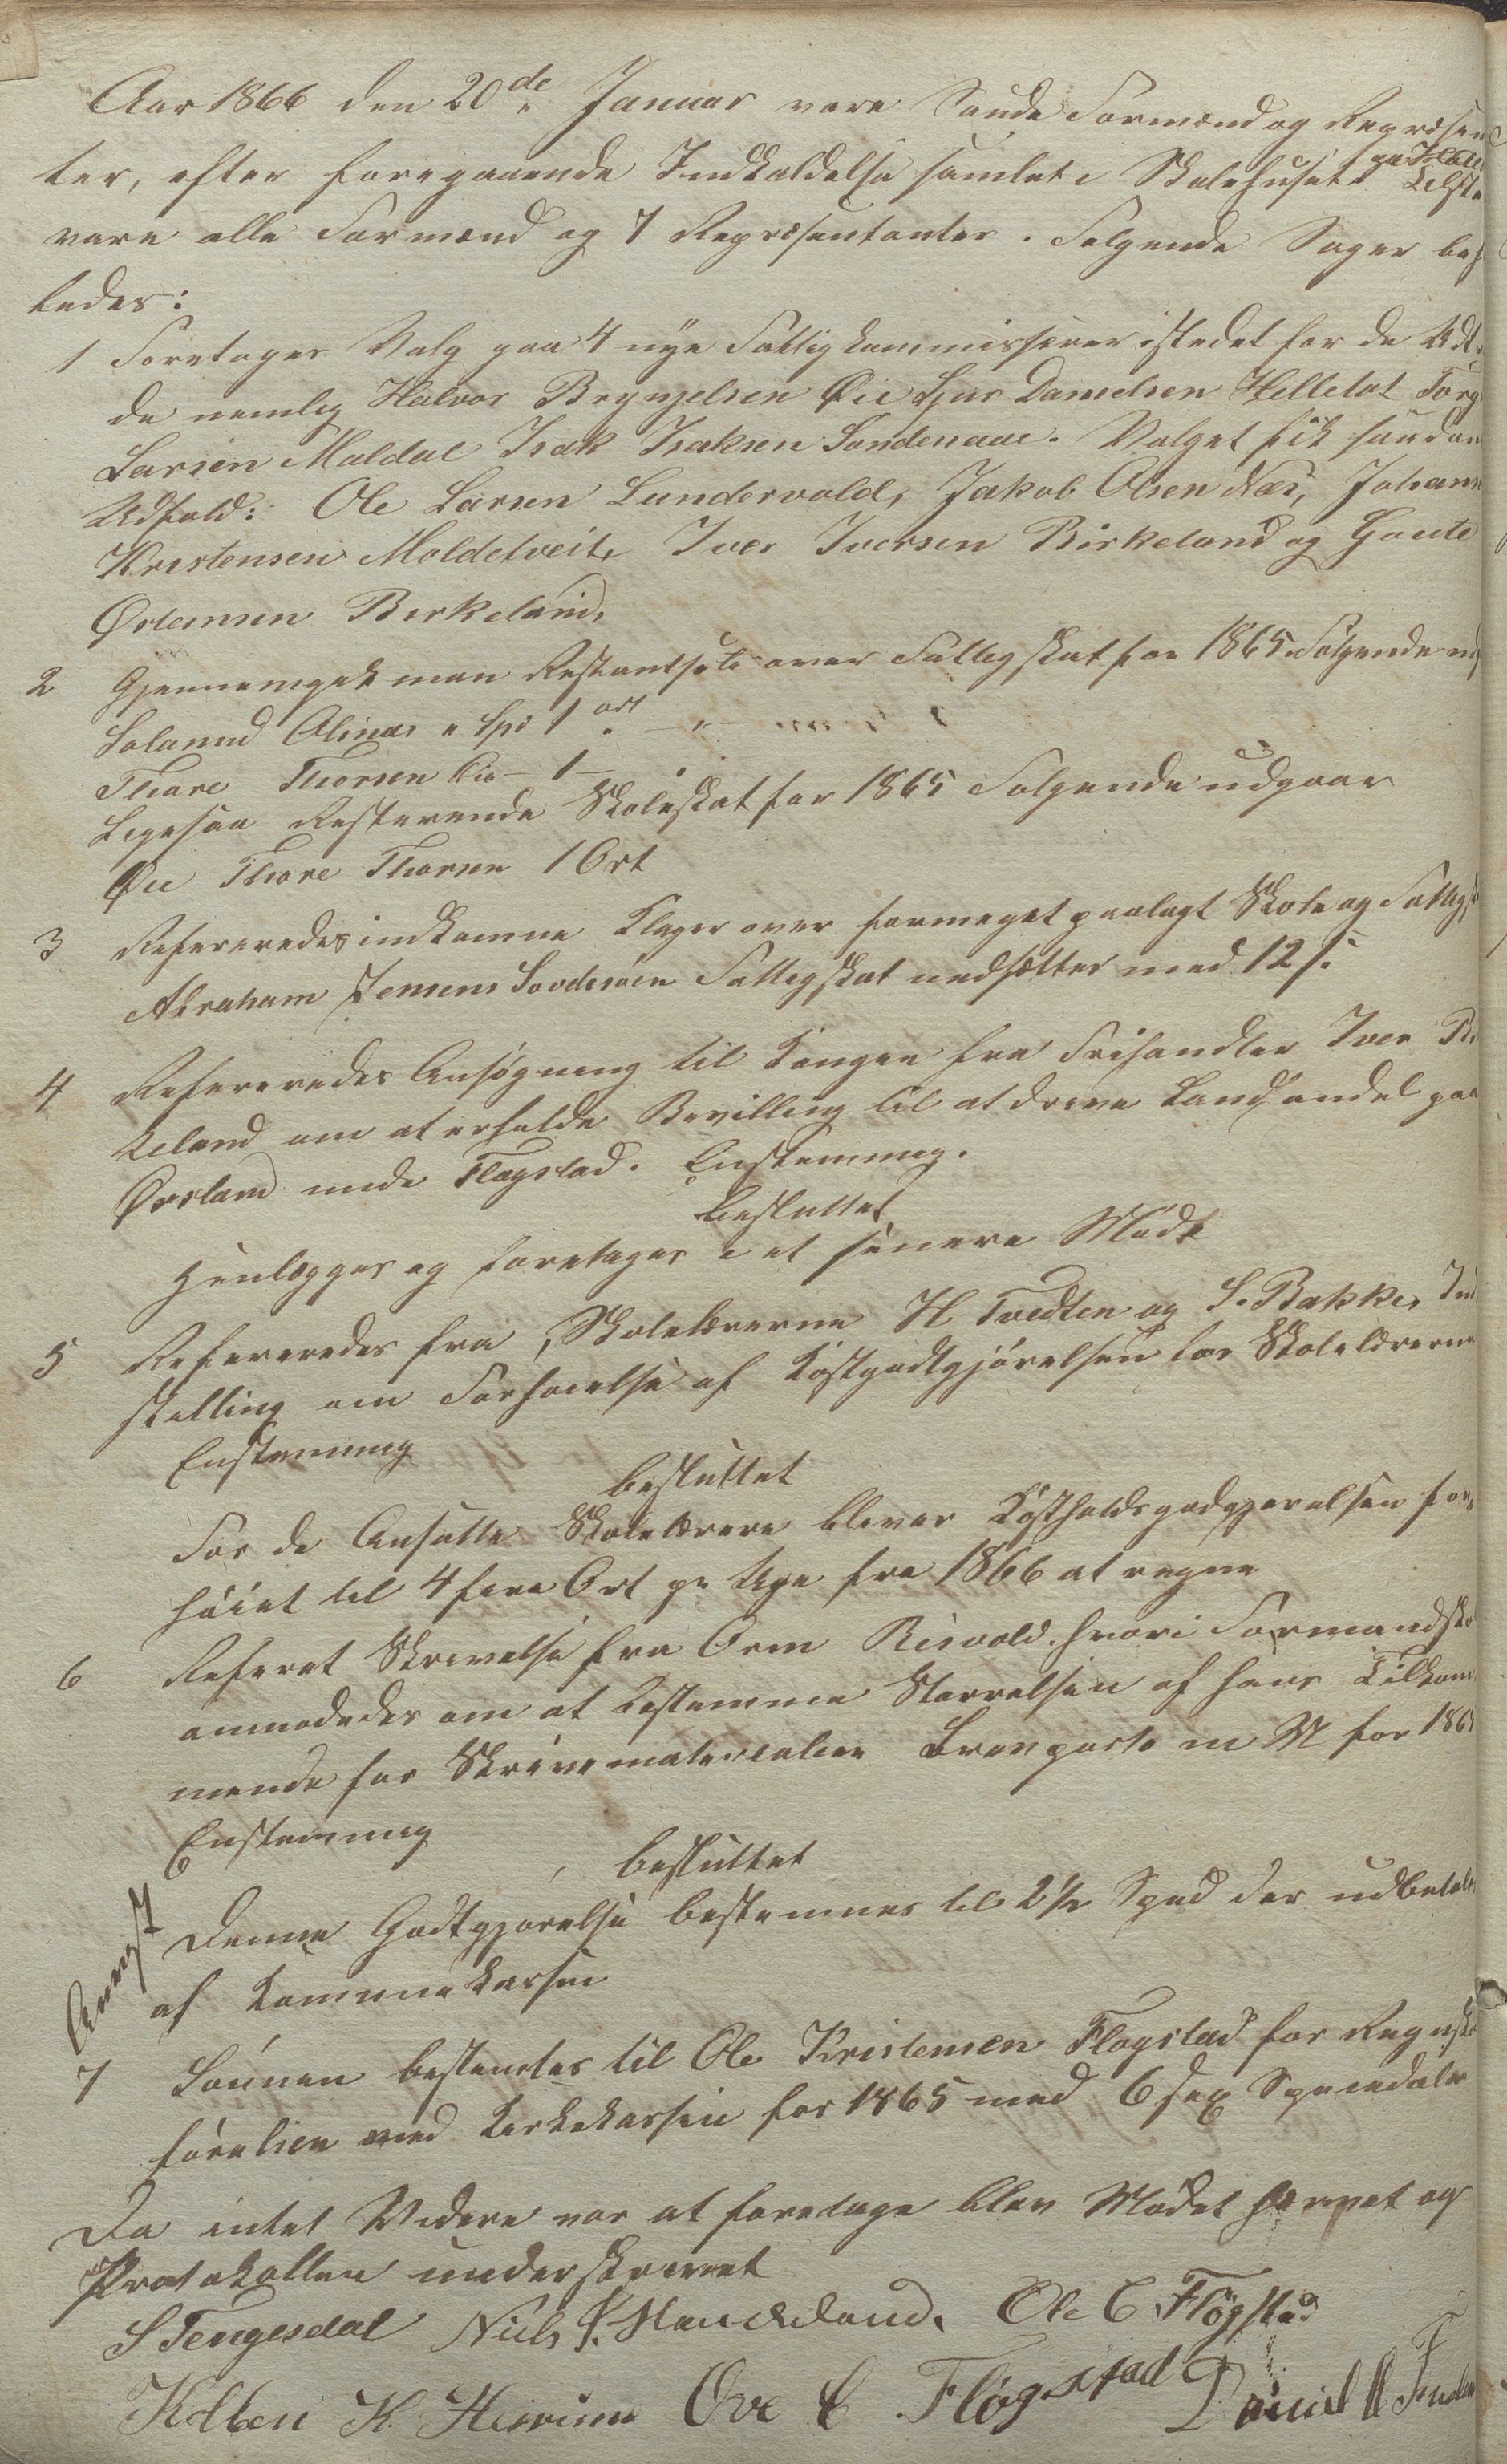 Aar 1866 den 20de Januar vare Saude Formænd og Repræsen
ter, efter foregaaende Indkaldelse samlet i Skolehuset
vare alle Formænd og 7 Repræsentanter. Følgende Sager beh
ledes:
1 Foretages Valg paa 4 nye Fattigkommissærer istedet for de Udt
de nemlig Halvor Brynjelsen Øie Daniel Danielsen Helletot
Larsen Maldal Isak Isaksen Sandenaae. Valget fik saadan
Udfald: Ole Larsen Lundervold, Jakob Olsen Næs, Johann
Kristensen Moldetveit, Iver Iversen Birkeland og Gaute
Østensen Birkeland,
2 Gjennemgik man Restantseliste over Fattigskat for 1865. Følgende
Alinar " Spd 1 ort "
Thore Thorsen Øie - 1 -
Ligesaa Resterende Skoleskat for 1865 Følgende udgaar
Øie Thore Thorsen 1 Ort
3 Refereredes indkomne Klager over formeget paalagt Skole og Fattigs
Abraham Jensens Fattigskat nedsættes med 12 s.
4 Refereredes Ansøgning til Kongen fra Frihandler Iver
land om at erholde Bevilling til at drive Landhandel paa
Øvsland unde Flogstad. Enstemmig.
besluttet
Henlægges og foretages i et senere Møde
5 Refereredes fra Skolelærerne H Tvedten og S. Bakke, Ind
stilling om Forhøielse af Kostgodtgjørelsen for Skolelærerne
Enstemmig
besluttet
For de Ansatte Skolelærere bliver Kostholdsgodgjørelsen for,
høiet til 4 fire Ort pr Uge fra 1866 at regne
6 Referet Skrivelse fra Orm Risvold. hvori Formandsk
anmodedes om at bestemme Størrelsen af hans Tilkom
mende for Skrivematerialier Brevporto m M for 1865
Enstemmig
besluttet
Denne Godtgjørelse bestemmes til 2½ Spd der udbetales
af Kommunekassen
7 Lønnen bestemtes til Ole Kristensen Flogstad for Regnska
førelsen ved Kirkekassen for 1865 med 6 sex Speciedaler
Da intet Videre var at foretage blev Mødet hævet og
Protokollen underskrevet
S Tengesdal Niels J. Handeland. Ole C Fløgstad
K Hiorum Ove C Fløgstad Daniel